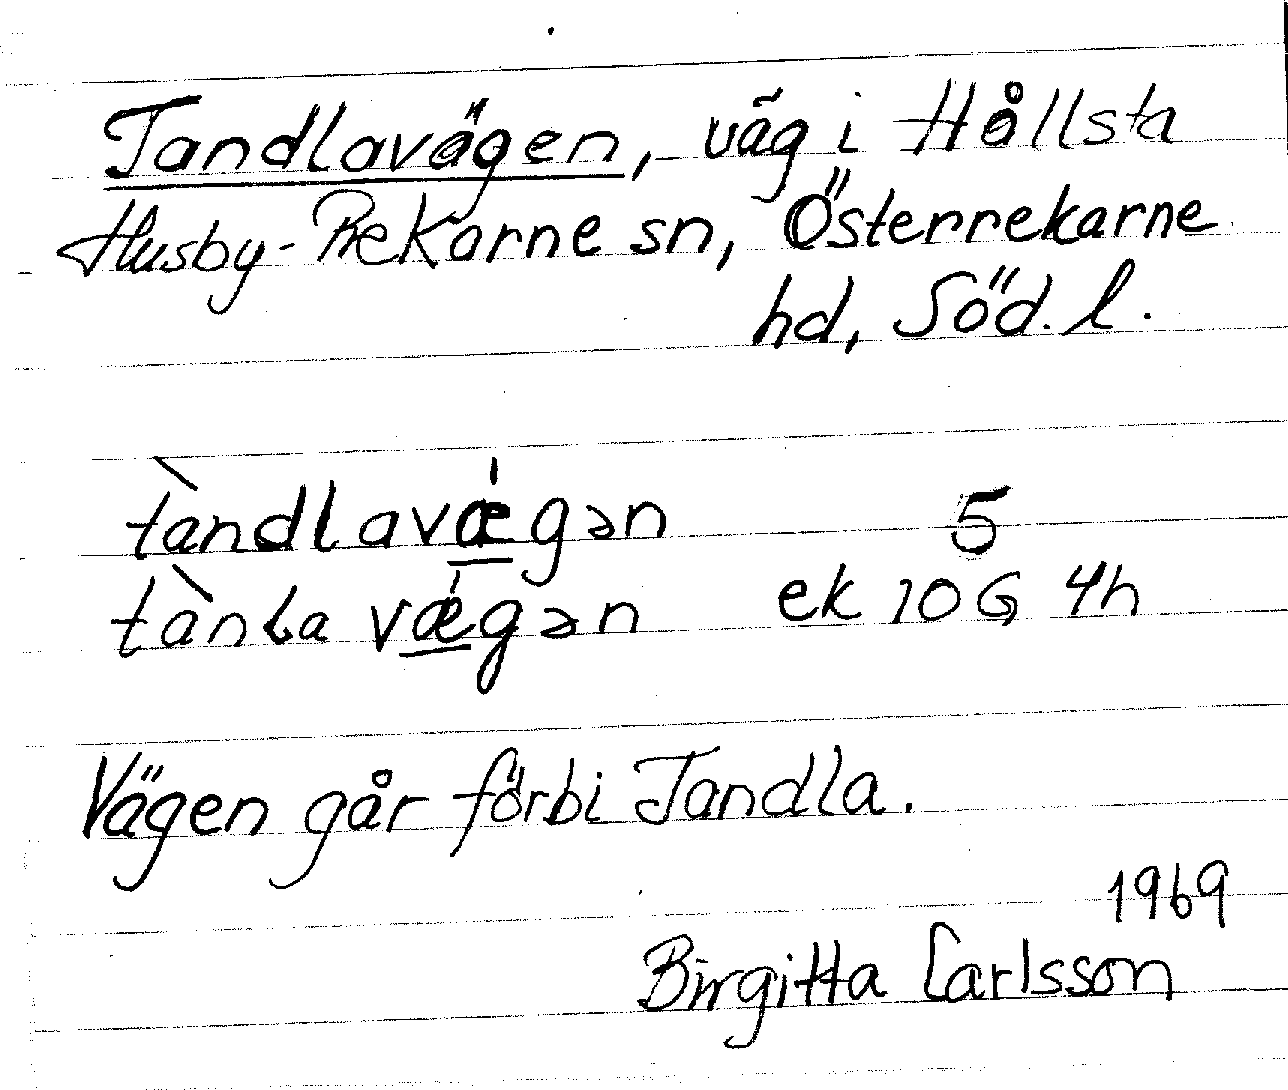 Tandlavägen, väg i Hållsta
Husby-Rekarne sn, Österrekarne
hd, Söd. l.
tàndlavǽgən 5
tànɬa vǽgən ek 10 G 4h
Vägen går förbi Tandla.
1969
Birgitta Carlsson